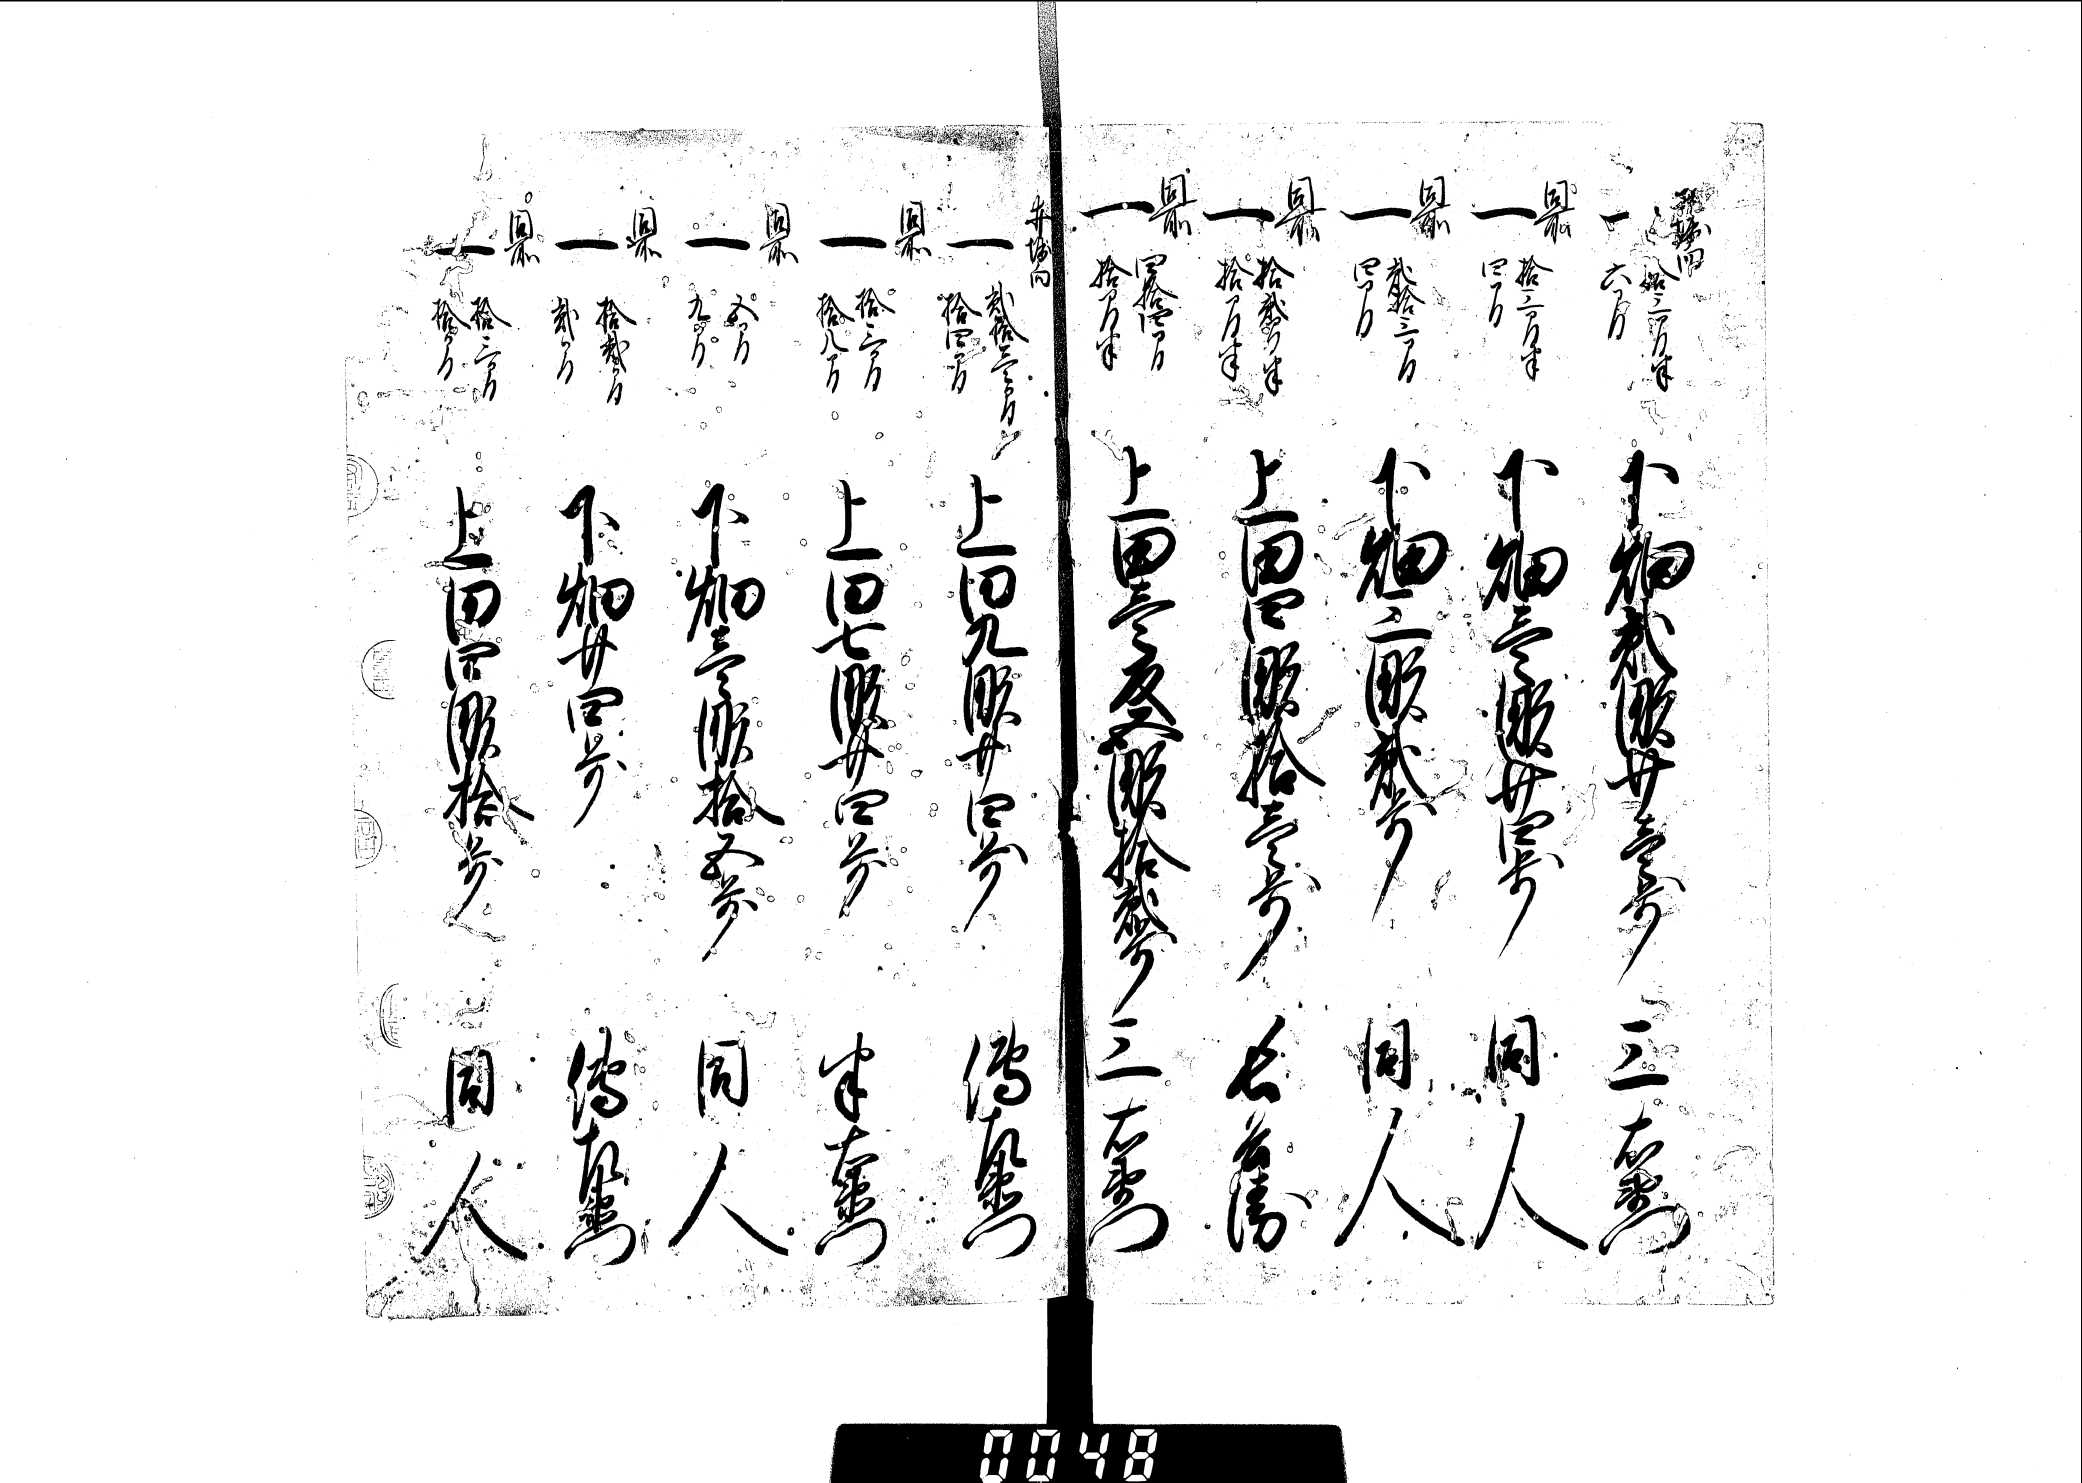 一 拾三間半 六間 下畑弐畝廿壱歩 三右衛門
同所
一 拾三間半 四間 下畑壱畝廿四歩 同人
同所
一 弐拾三間 四間 下畑三畝弐歩 同人
同所
一 拾弐間半 拾間半 上田四畝拾壱歩
同所
一 四拾四間 拾間半 上田壱反五畝拾弐歩 三右衛門
一 弐拾壱間 拾四間 上田九畝廿四歩 傳左衛門
同所
一 拾三間 拾八間 上田七畝廿四歩 半右衛門
同所
一 五間 九間 下畑壱畝拾五歩 同人
同所
一 拾弐間 弐間 下畑廿四歩 傳左衛門
同所
一 拾三間 拾間 上田四畝拾歩 同人
0048